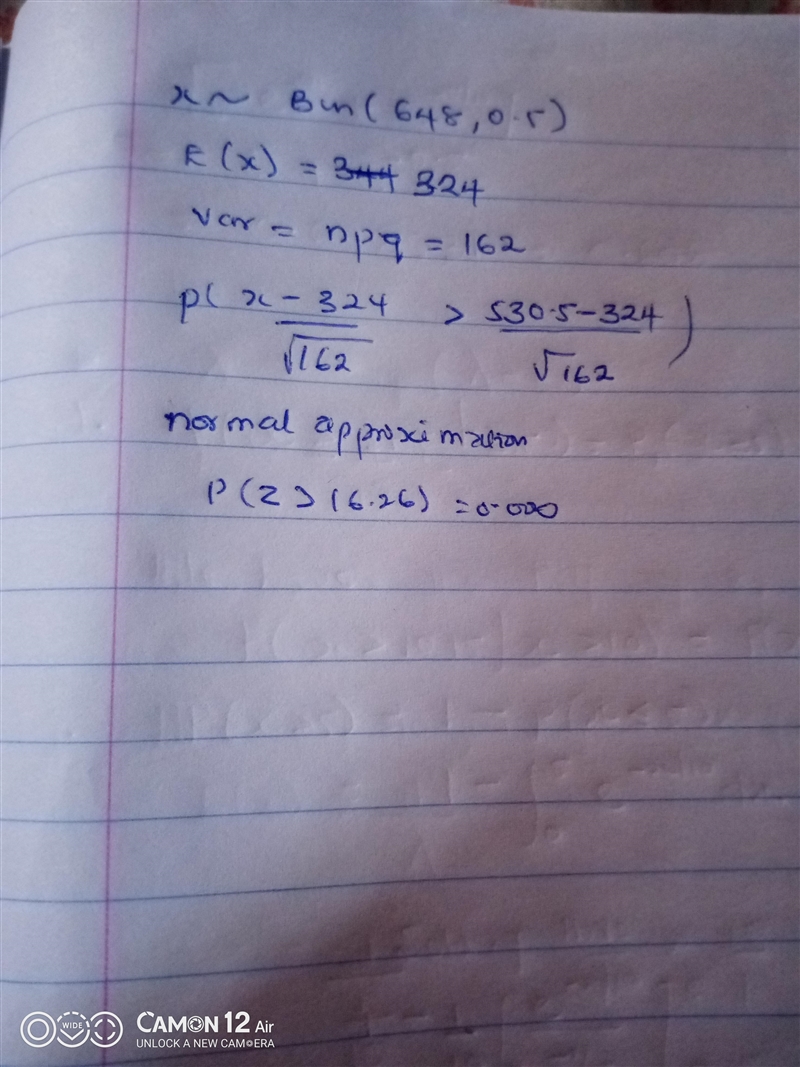 x ~ Bin(648, 0.5)
E(x) = 344 324
Var = npq = 162
P( x - 324 / √162 > 530.5 - 324 / √162 )
normal approximation
P(Z > 16.26) = 0.000
WIDE
CAMON 12 Air
UNLOCK A NEW CAMERA